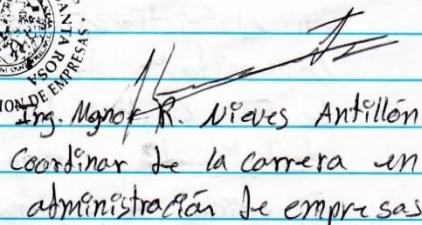 SANTA ROSA
ION DE EMPRESAS.
Ing. Mgnor R. Nieves Antillón
Coordinar de la carrera en
administración de empresas